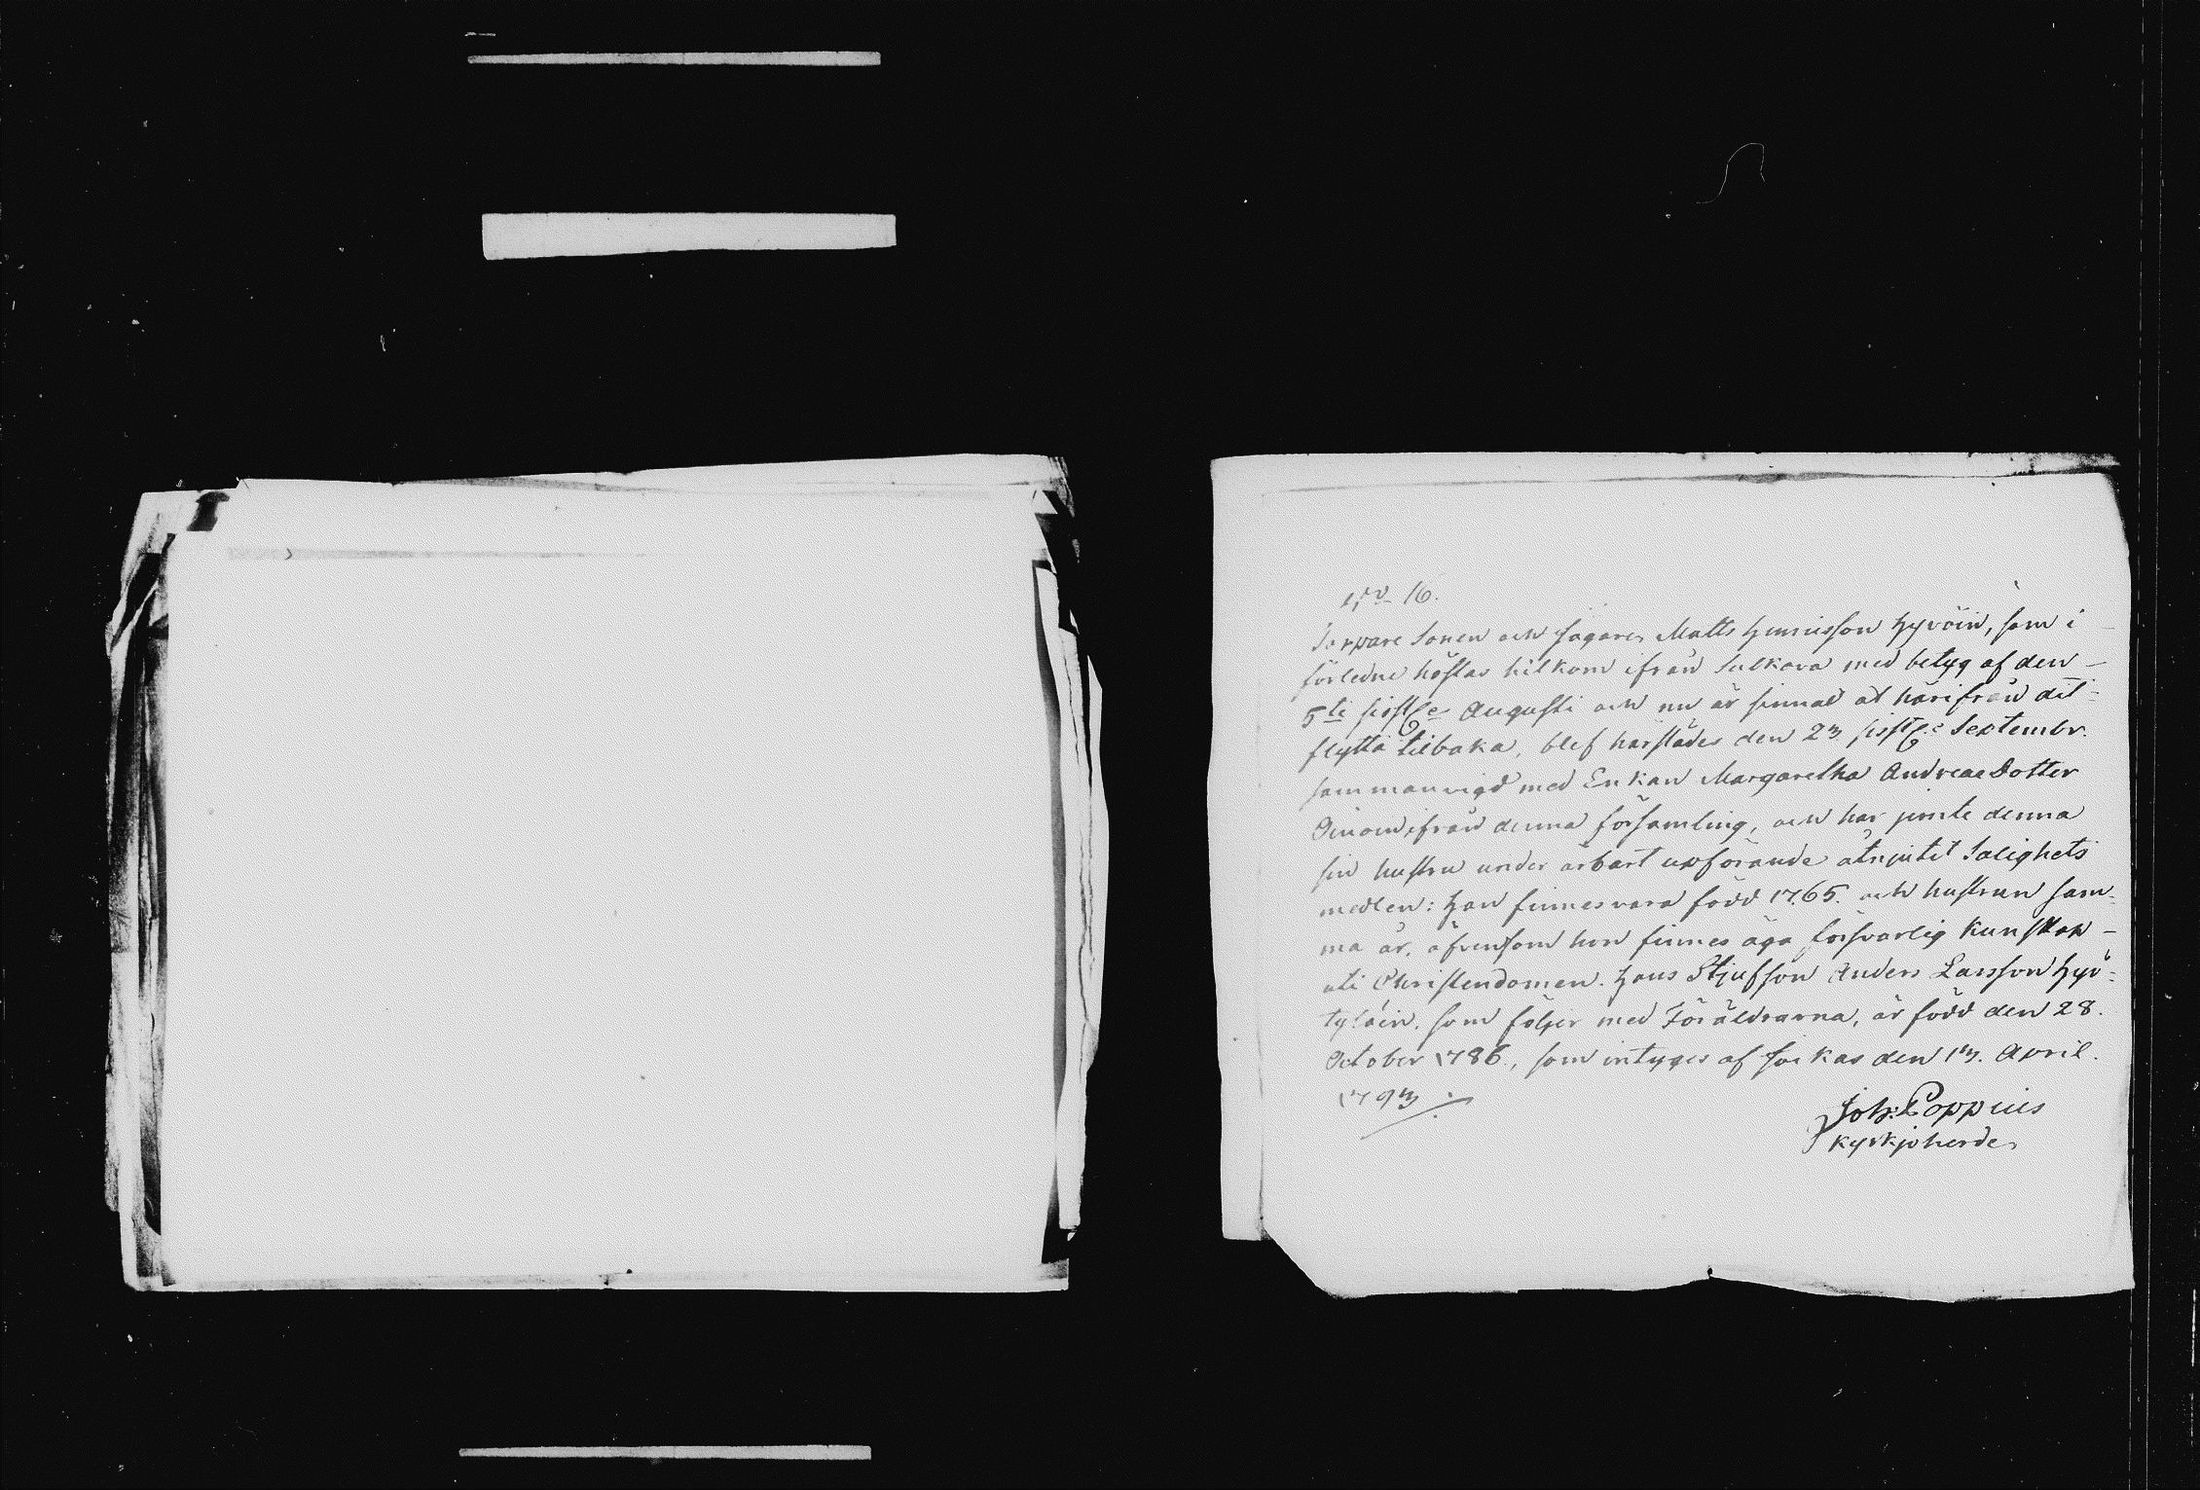 No 16.
Torpare Sonen och Jägaren Matts Henricsson Hyvöin, som i
förledne höstas hitkom ifrån Sulkava med betyg af den
5te sistl. Augusti och nu är sinnad at härifrån dit
flytta tilbaka, blef härstädes den 23 sistl. Septembr.
sammanvigd med Enkan Margaretha Andreae Dotter
ifrån denna församling, och har jemte denna
sin hustru under ärbart upförande åtnjutit Salighets
medlen: Han finnes vara född 1765. och hustrun sam-
ma år, äfvensom hon finnes äga försvarlig Kunskap
uti Christendomen. Hans Stjufson Anders Larsson Hyö-
tyläin, som följer med Föräldrarna, är född den 28.
October 1786, som intygas af Jockas den 13. April.
1793
Joh: Poppius
Kyrkjoherde